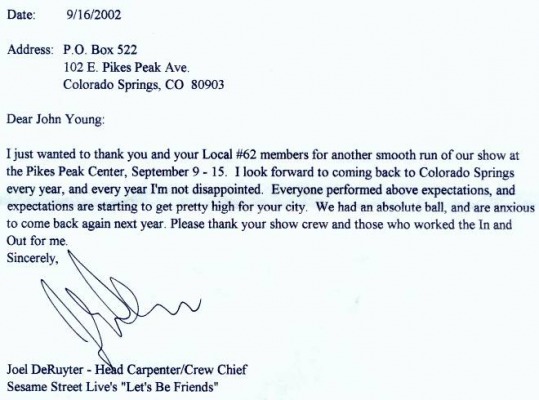 Date: 9/16/2002
Address: P.O. Box 522
102 E. Pikes Peak Ave.
Colorado Springs, CO 80903
Dear John Young:
I just wanted to thank you and your Local #62 members for another smooth run of our show at
the Pikes Peak Center, September 9 - 15. I look forward to coming back to Colorado Springs
every year, and every year I'm not disappointed. Everyone performed above expectations, and
expectations are starting to get pretty high for your city. We had an absolute ball, and are anxious
to come back again next year. Please thank your show crew and those who worked the In and
Out for me.
Sincerely,
Joel DeRuyter - Head Carpenter/Crew Chief
Sesame Street Live's "Let's Be Friends"